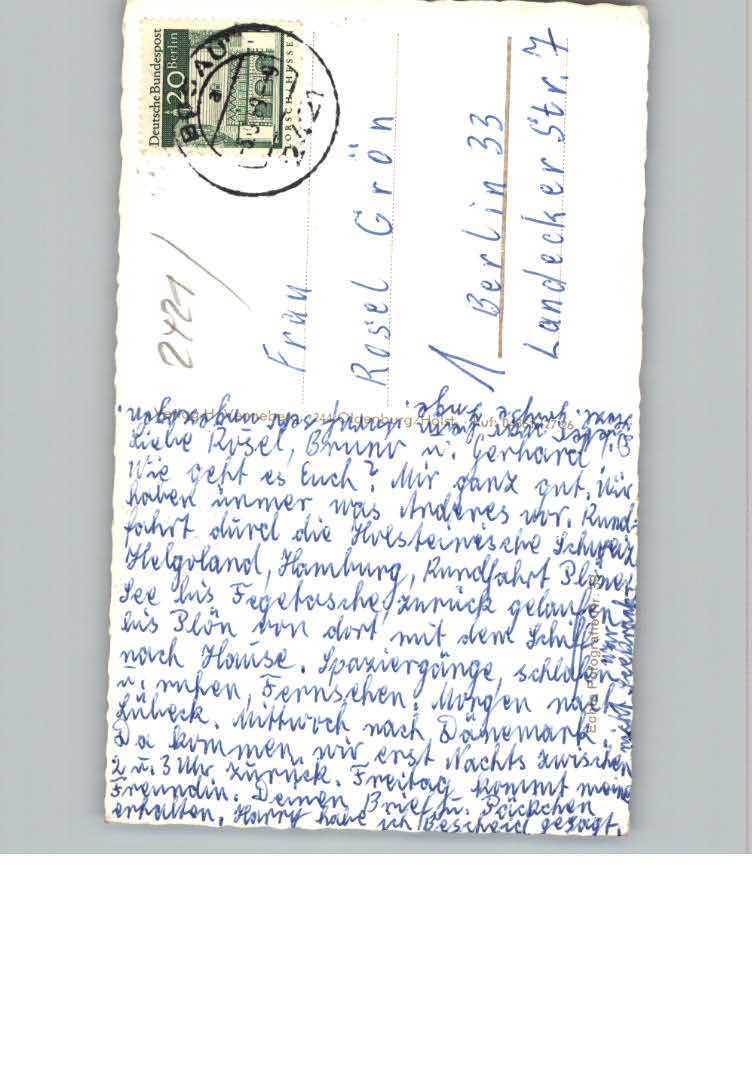 Deutsche Bundespost
20 Berlin
LORSCH/HESSEN
BOSAU
a
2421
2421
Frau
Rosel Grön
1 Berlin 33
Landecker Str. 7
Verlag H. 244 Oldenburg/Holst.
Echte Fotografie
Liebe Rosel, Bruno u. Gerhard!
Wie geht es Euch? Mir ganz gut. Wir
haben immer was Anderes vor. Rund-
fahrt durch die Holsteinische Schweiz
Helgoland, Hamburg, Rundfahrt Plöner
See bis Fegetasche, zurück gelaufen
bis Plön von dort mit dem Schiff
nach Hause. Spaziergänge, schlafen
u. ruhen, Fernsehen. Morgen nach
Lübeck. Mittwoch nach Dänemark.
Da kommen wir erst Nachts zwischen
2 u. 3 Uhr zurück. Freitag kommt meine
Freundin. Deinen Brief u. Päckchen
erhalten. Harry habe ich Bescheid gesagt.
nicht